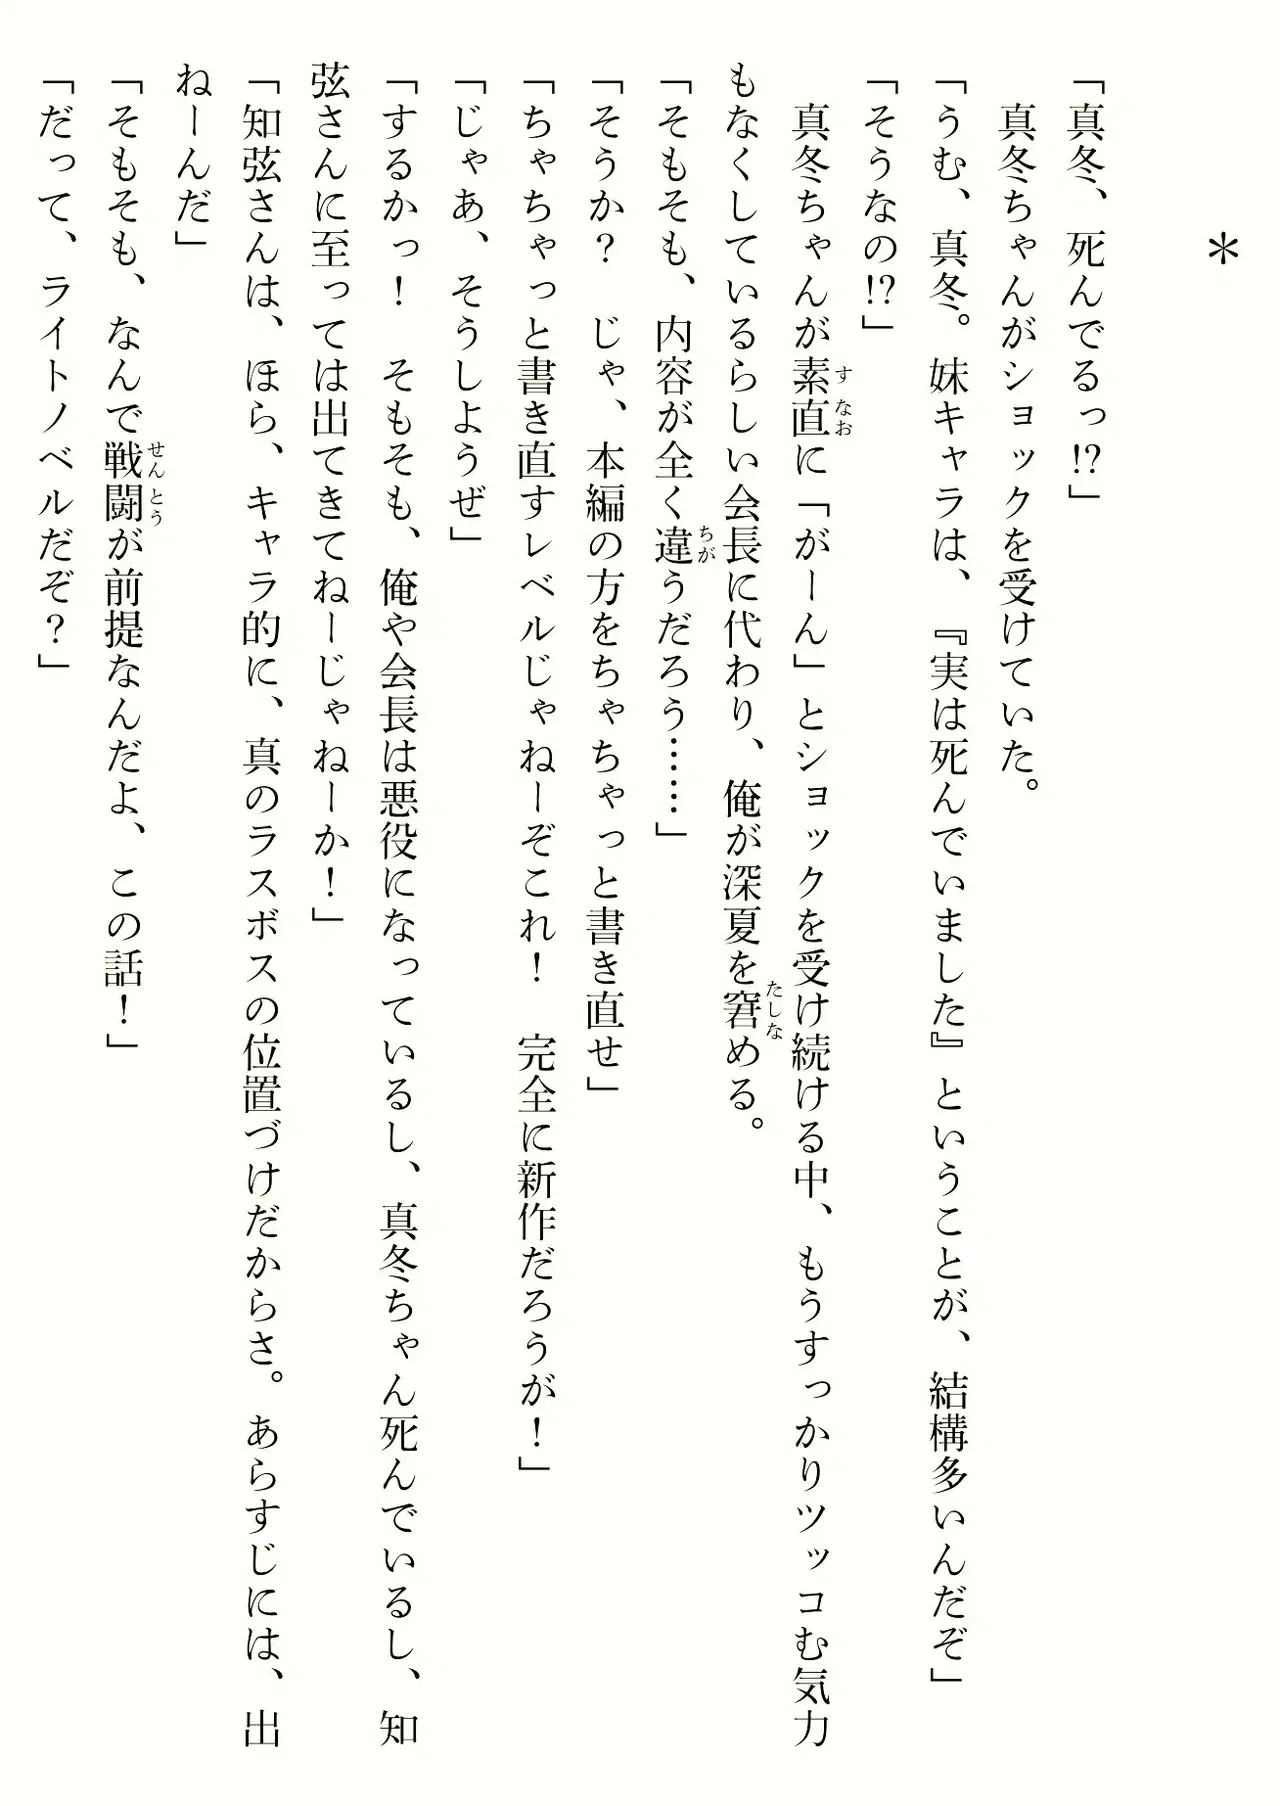 ＊
「真冬、死んでるっ!?」
　真冬ちゃんがショックを受けていた。
「うむ、真冬。妹キャラは、『実は死んでいました』ということが、結構多いんだぞ」
「そうなの!?」
　真冬ちゃんが素直に「がーん」とショックを受け続ける中、もうすっかりツッコむ気力
もなくしているらしい会長に代わり、俺が深夏を窘める。
「そもそも、内容が全く違うだろう……」
「そうか？　じゃ、本編の方をちゃちゃっと書き直せ」
「ちゃちゃっと書き直すレベルじゃねーぞこれ！　完全に新作だろうが！」
「じゃあ、そうしようぜ」
「するかっ！　そもそも、俺や会長は悪役になっているし、真冬ちゃん死んでいるし、知
弦さんに至っては出てきてねーじゃねーか！」
「知弦さんは、ほら、キャラ的に、真のラスボスの位置づけだからさ。あらすじには、出
ねーんだ」
「そもそも、なんで戦闘が前提なんだよ、この話！」
「だって、ライトノベルだぞ？」